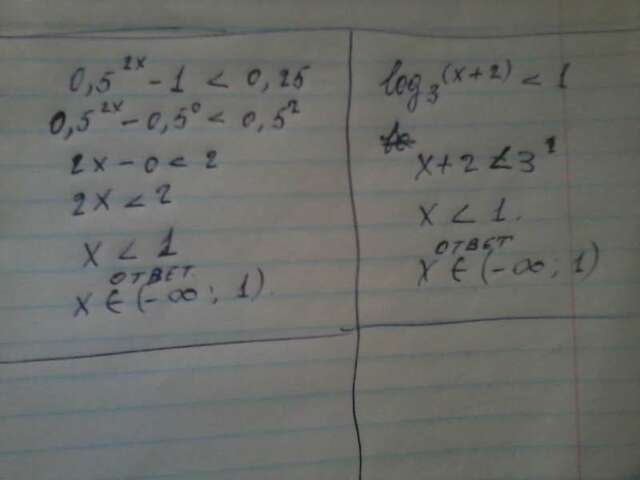 0,5^2x - 1 < 0,25
0,5^2x - 0,5^0 < 0,5^2
2x - 0 < 2
2x < 2
x < 1
ОТВЕТ
x ∈ (-∞; 1).
log₃(x+2) < 1
x + 2 < 3^1
x < 1.
ОТВЕТ
x ∈ (-∞; 1)